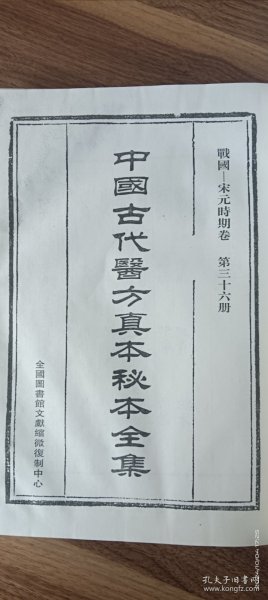 戰國—宋元時期卷　第三十六册
中國古代醫方真本秘本全集
全國圖書館文獻縮微復制中心
2024/10/04 17:25
孔夫子旧书网
kongfz.com